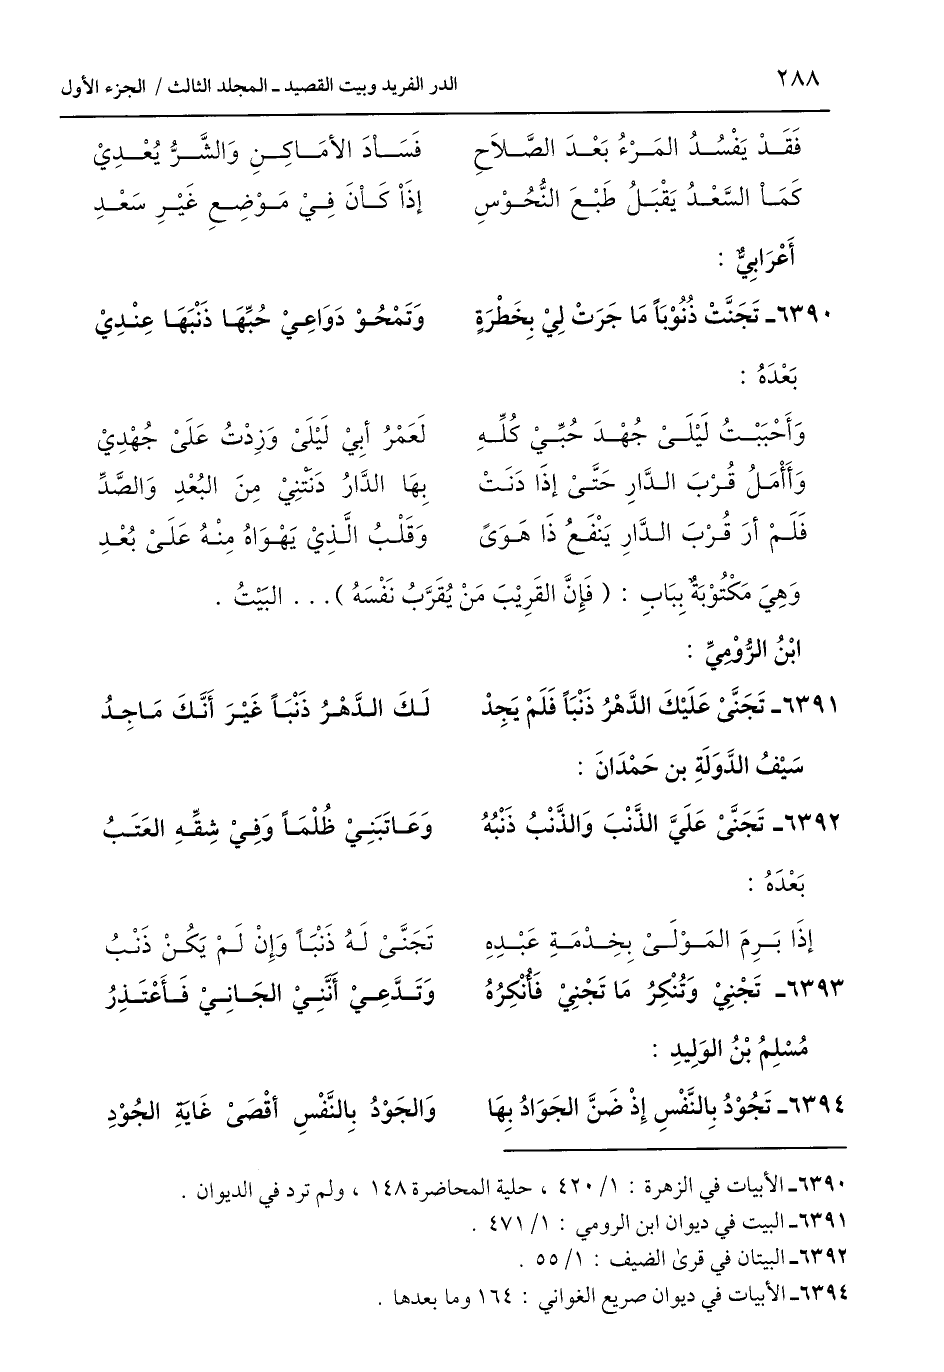 ٢٨٨ الدر الفريد وبيت القصيد ـ المجلد الثالث / الجزء الأول
فَقَدْ يَفْسُدُ المَرْءُ بَعْدَ الصَّلاَحِ فَسَاْدَ الأمَاكِنِ وَالشَّرُّ يُعْدِيْ
كَمَاْ السَّعْدُ يَقْبَلُ طَبْعَ النُّحُوْسِ إذَاْ كَاْنَ فِيْ مَوْضِعٍ غَيْرِ سَعْدِ
أَعْرَابِيٌّ :
٦٣٩٠ـ تَجَنَّتْ ذُنُوْبَاً مَا جَرَتْ لِيْ بِخَطْرَةٍ وَتَمْحُوْ دَوَاعِيْ حُبِّهَا ذَنْبَهَا عِنْدِيْ
بَعْدَهُ :
وَأَحْبَبْتُ لَيْلَىْ جُهْدَ حُبِّيْ كُلِّهِ لَعَمْرُ أبِيْ لَيْلَىْ وَزِدْتُ عَلَىْ جُهْدِيْ
وَأَأْمَلُ قُرْبَ الدَّارِ حَتَّىْ إذَا دَنَتْ بِهَا الدَّارُ دَنَّتْنِيْ مِنَ البُعْدِ وَالصَّدِّ
فَلَمْ أرَ قُرْبَ الدَّارِ يَنْفَعُ ذَا هَوَىً وَقَلْبُ الَّذِيْ يَهْوَاهُ مِنْهُ عَلَىْ بُعْدِ
وَهِيَ مَكْتُوْبَةٌ بِبَابِ : ( فَإنَّ القَرِيْبَ مَنْ يُقَرَّبُ نَفْسَهُ ) . . . البَيْتُ .
ابْنُ الرُّوْمِيِّ :
٦٣٩١ـ تَجَنَّىْ عَلَيْكَ الدَّهْرُ ذَنْبَاً فَلَمْ يَجِدْ لَكَ الدَّهْرُ ذَنْبَاً غَيْرَ أَنَّكَ مَاجِدُ
سَيْفُ الدَّوْلَةِ بن حَمْدَانَ :
٦٣٩٢ـ تَجَنَّىْ عَلَيَّ الذَّنْبَ وَالذَّنْبُ ذَنْبُهُ وَعَاتَبَنِيْ ظُلْمَاً وَفِيْ شِقِّهِ العَتَبُ
بَعْدَهُ :
إذَا بَرِمَ المَوْلَىْ بِخِدْمَةِ عَبْدِهِ تَجَنَّىْ لَهُ ذَنْبَاً وَإنْ لَمْ يَكُنْ ذَنْبُ
٦٣٩٣ـ تَجْنِيْ وَتُنْكِرُ مَا تَجْنِيْ فَأُنْكِرُهُ وَتَدَّعِيْ أنَّنِيْ الجَانِيْ فَأعْتَذِرُ
مُسْلِمُ بْنُ الوَلِيدِ :
٦٣٩٤ـ تَجُوْدُ بِالنَّفْسِ إذْ ضَنَّ الجَوَادُ بِهَا وَالجَوْدُ بِالنَّفْسِ أقْصَىْ غَايَةِ الجُوْدِ
٦٣٩٠ـ الأبيات في الزهرة : ١/ ٤٢٠ ، حلية المحاضرة ١٤٨ ، ولم ترد في الديوان .
٦٣٩١ـ البيت في ديوان ابن الرومي : ١/ ٤٧١ .
٦٣٩٢ـ البيتان في قرىٰ الضيف : ١/ ٥٥ .
٦٣٩٤ـ الأبيات في ديوان صريع الغواني : ١٦٤ وما بعدها .